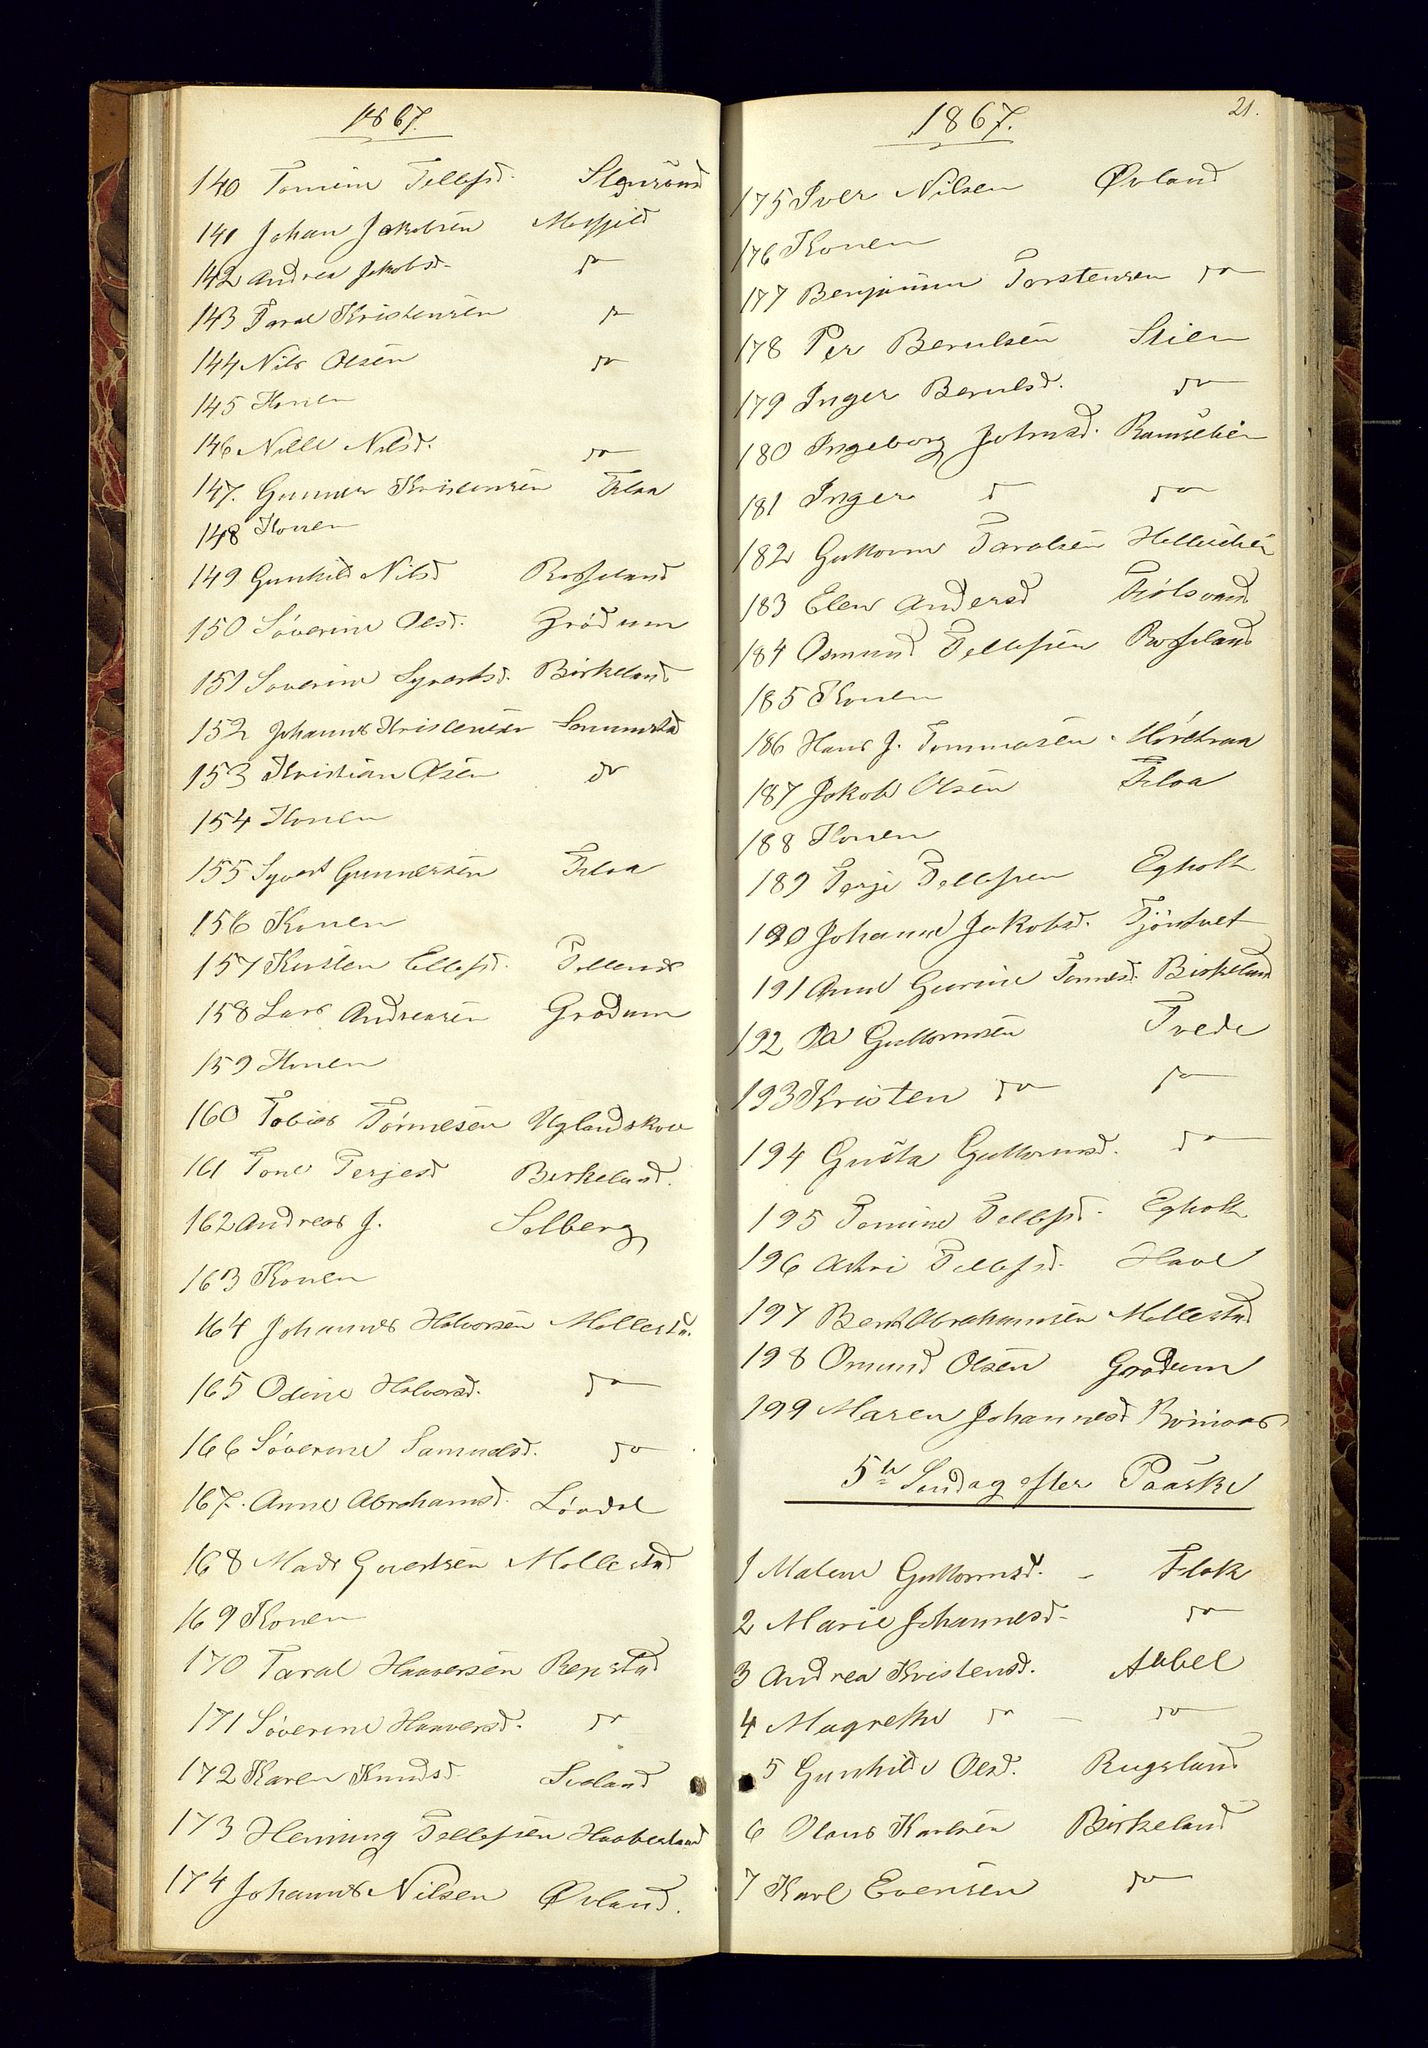 1867.
140 Tomine Tellefsd.
141 Johan Jakobsen Mosfjeld
142 Andrea Jakobsd. do
143 Taral Kristensen do
144 Nils Olsen do
145 Konen
146 Nille Nilsd. do
147. Gunner Kristensen Floa
148 Konen
149 Gunhild Nilsd Rosseland
150 Søverine Olsd. Grødum
151 Soverine Syvertsd. Birkeland
152 Johannes Kristensen
153 Kristian Olsen do
154 Konen
155 Syvert Gunnersen Floa
156 Konen
157 Kirsten Ellefsd.
158 Lars Andreasen Grødum
159 Konen
160 Tobias Tørresen Uglandskov
161 Tone Terjesd Birkeland.
162 Andreas J. Solberg
163 Konen
164 Johannes Halvorsen Mollesta.
165 Odine Halvorsd. do
166 Søverine Samuelsd. do
167. Anne Abrahamsd. Løvdal
168 Mads Govertsen Mollestad
169 Konen
170 Taral Haaversen Repstad
171 Søverine Haaversd. do
172 Karen Knudsd.
173 Henning Tellefsen Haaberland
174 Johannes Nilsen Øvland.
1867. 21.
175 Iver Nilsen Øvland
176 Konen
177 Benjamin Torstensen do
178 Per Berulsen Stien
179 Inger Berulsd. do
180 Ingeborg Johnsd.
181 Inger d do
182 Guttorm Taralsen
183 Elen Andersd
184 Osmund Tellefsen Rosseland
185 Konen
186 Hans J. Tommasen
187 Jakob Olsen Floa
188 Konen
189 Terje Tellefsen Egholt
190 Johanne Jakobsd.
191 Anne Gurine Birkeland
192 Guttormsen Tvede
193 Kristen do do
194 Gusta Guttormsd. do
195 Tomine Tellefsd. Egholt
196 Tellefsd. Have
197 Bent Abrahamsen Mollestad
198 Omund Olsen Grødum
199 Maren Johannesd
5te Søndag efter Paaske
1 Malene Guttormsd. - Flak
2 Marie Johannesd. do
3 Andrea Kristensd. Aabel
4 Magrethe do - do
5 Gunhilde Olsd. Rugsland
6 Olaus Karlsen Birkeland
7 Karl Evensen do